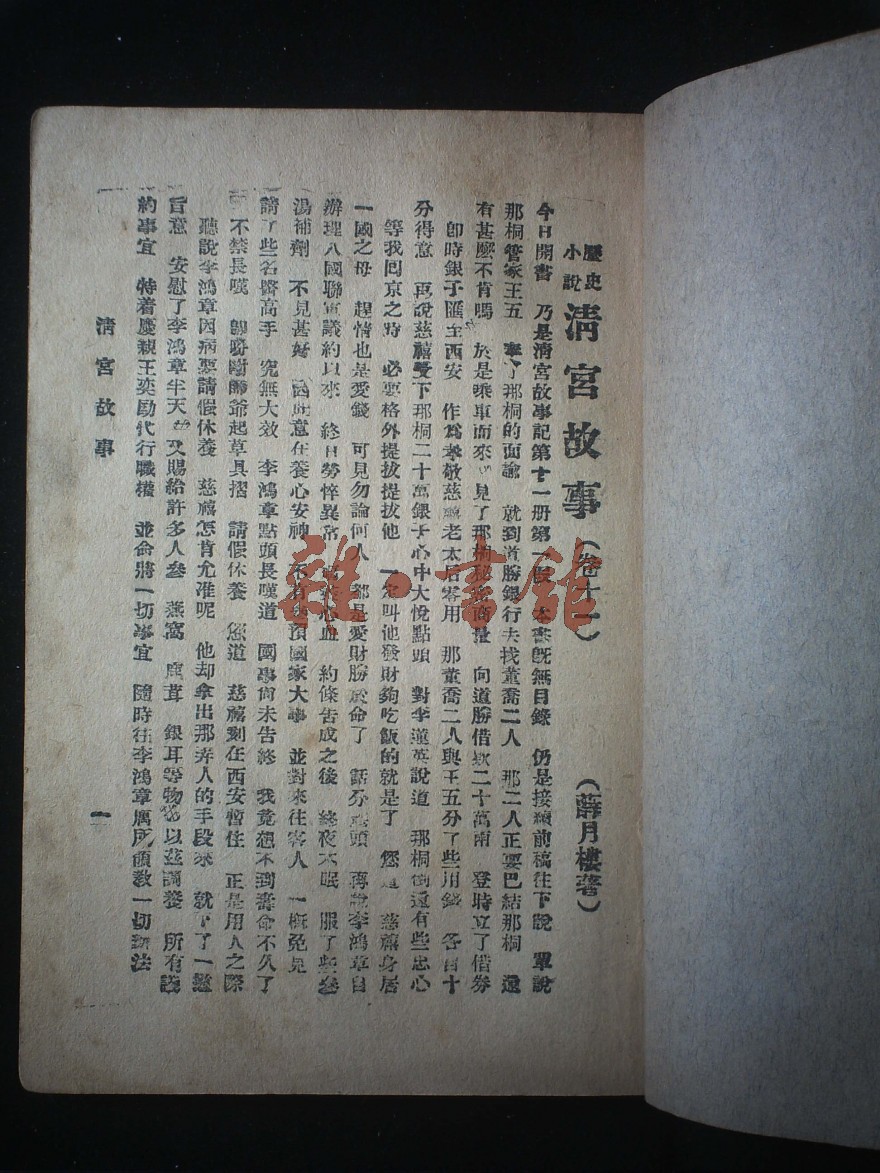 歷史小說 清宮故事(卷十一)
(薛月樓著)
今日開書 乃是清宮故事記第十一册第一段 本書旣無目錄 仍是接續前稿往下說 單說
那桐管家王五 奉了那桐的面諭 就到道勝銀行去找董喬二人 那二人正要巴結那桐 還
有甚麼不肯嗎 於是乘車而來 見了那桐秘密商量 向道勝借欵二十萬兩 登時立了借券
卽時銀子匯至西安 作爲孝敬慈禧老太后零用 那董喬二人與王五分了些用錢 各自十
分得意 再說慈禧受下那桐二十萬銀子心中大悅點頭 對李蓮英說道 那桐倒還有些忠心
等我囘京之時 必要格外提拔提拔他 一定叫他發財夠吃飯的就是了 您道 慈禧身居
一國之母 趕情也是愛錢 可見勿論何人 都是愛財勝於命了 話分 頭 再說李鴻章自
辦理八國聯軍議約以來 終日勞悴異常 心血 約條告成之後 終夜不眠 服了些參
湯補劑 不見甚好 因此意在養心安神 不肯干預國家大事 並對來往客人 一概免見
請了些名醫高手 究無大效 李鴻章點頭長嘆道 國事尙未吿終 我竟想不到壽命不久了
不禁長嘆 師爺起草具摺 請假休養 您道 慈禧到在西安暫住 正是用人之際
聽說李鴻章因病要請假休養 慈禧怎肯允准呢 他却拿出那弄人的手段來 就下了一道
旨意 安慰了李鴻章半天 又賜給許多人參 燕窩 鹿茸 銀耳等物 以茲調養 所有議
約事宜 特着慶親王奕劻代行職權 並命將一切事宜 隨時往李鴻章寓所領敎一切辦法
清宮故事
一
雜·書館